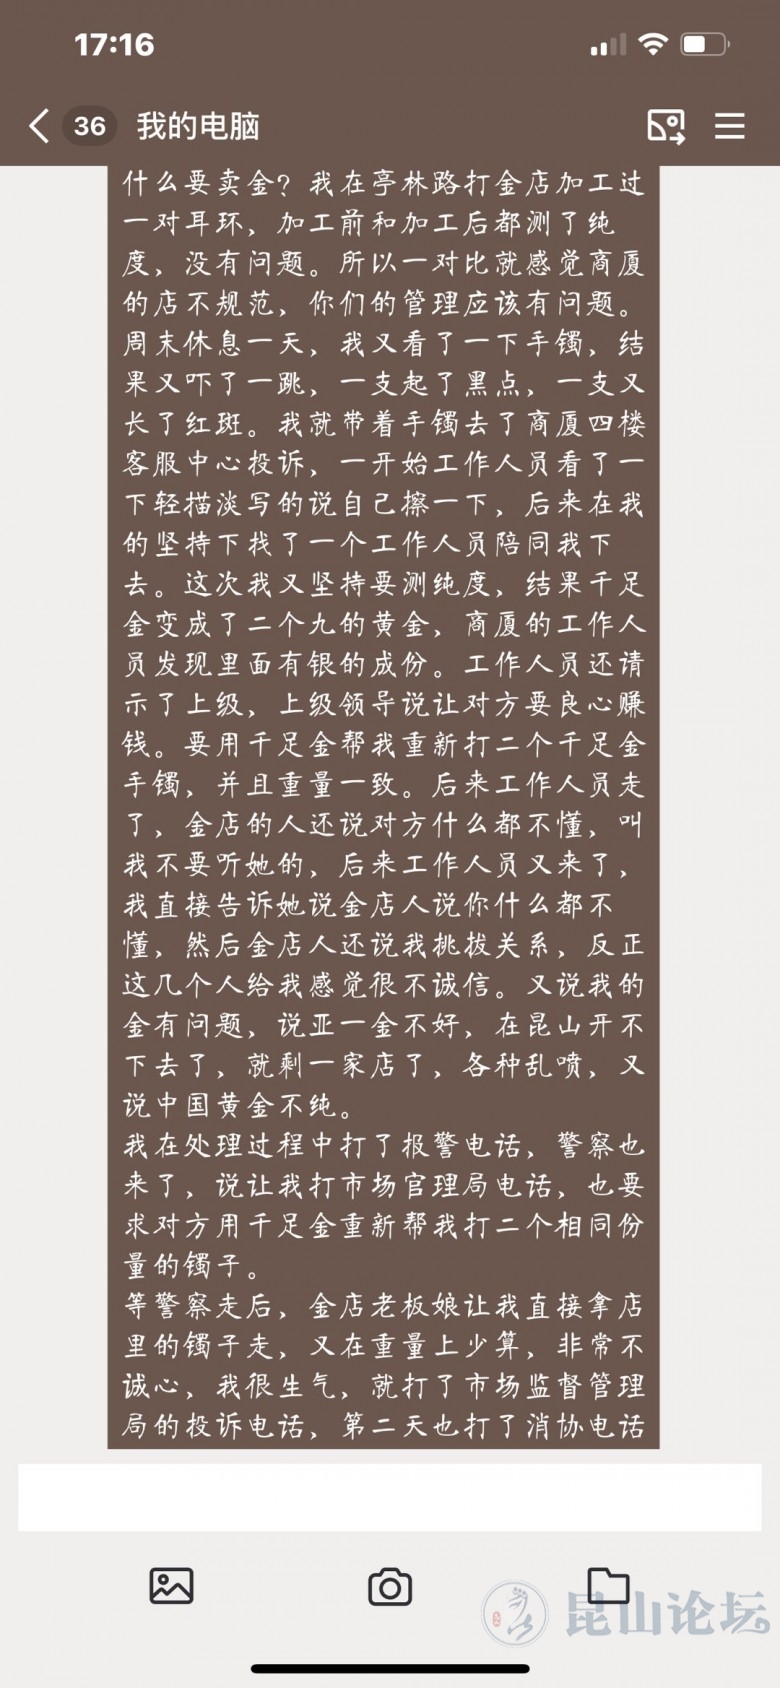 17:16
36 我的电脑
什么要卖金？我在亭林路打金店加工过
一对耳环，加工前和加工后都测了纯
度，没有问题。所以一对比就感觉商厦
的店不规范，你们的管理应该有问题。
周末休息一天，我又看了一下手镯，结
果又吓了一跳，一支起了黑点，一支又
长了红斑。我就带着手镯去了商厦四楼
客服中心投诉，一开始工作人员看了一
下轻描淡写的说自己擦一下，后来在我
的坚持下找了一个工作人员陪同我下
去。这次我又坚持要测纯度，结果千足
金变成了二个九的黄金，商厦的工作人
员发现里面有银的成份。工作人员还请
示了上级，上级领导说让对方要良心赚
钱。要用千足金帮我重新打二个千足金
手镯，并且重量一致。后来工作人员走
了，金店的人还说对方什么都不懂，叫
我不要听她的，后来工作人员又来了，
我直接告诉她说金店人说你什么都不
懂，然后金店人还说我挑拔关系，反正
这几个人给我感觉很不诚信。又说我的
金有问题，说亚一金不好，在昆山开不
下去了，就剩一家店了，各种乱喷，又
说中国黄金不纯。
我在处理过程中打了报警电话，警察也
来了，说让我打市场官理局电话，也要
求对方用千足金重新帮我打二个相同份
量的镯子。
等警察走后，金店老板娘让我直接拿店
里的镯子走，又在重量上少算，非常不
诚心，我很生气，就打了市场监督管理
局的投诉电话，第二天也打了消协电话
昆山论坛